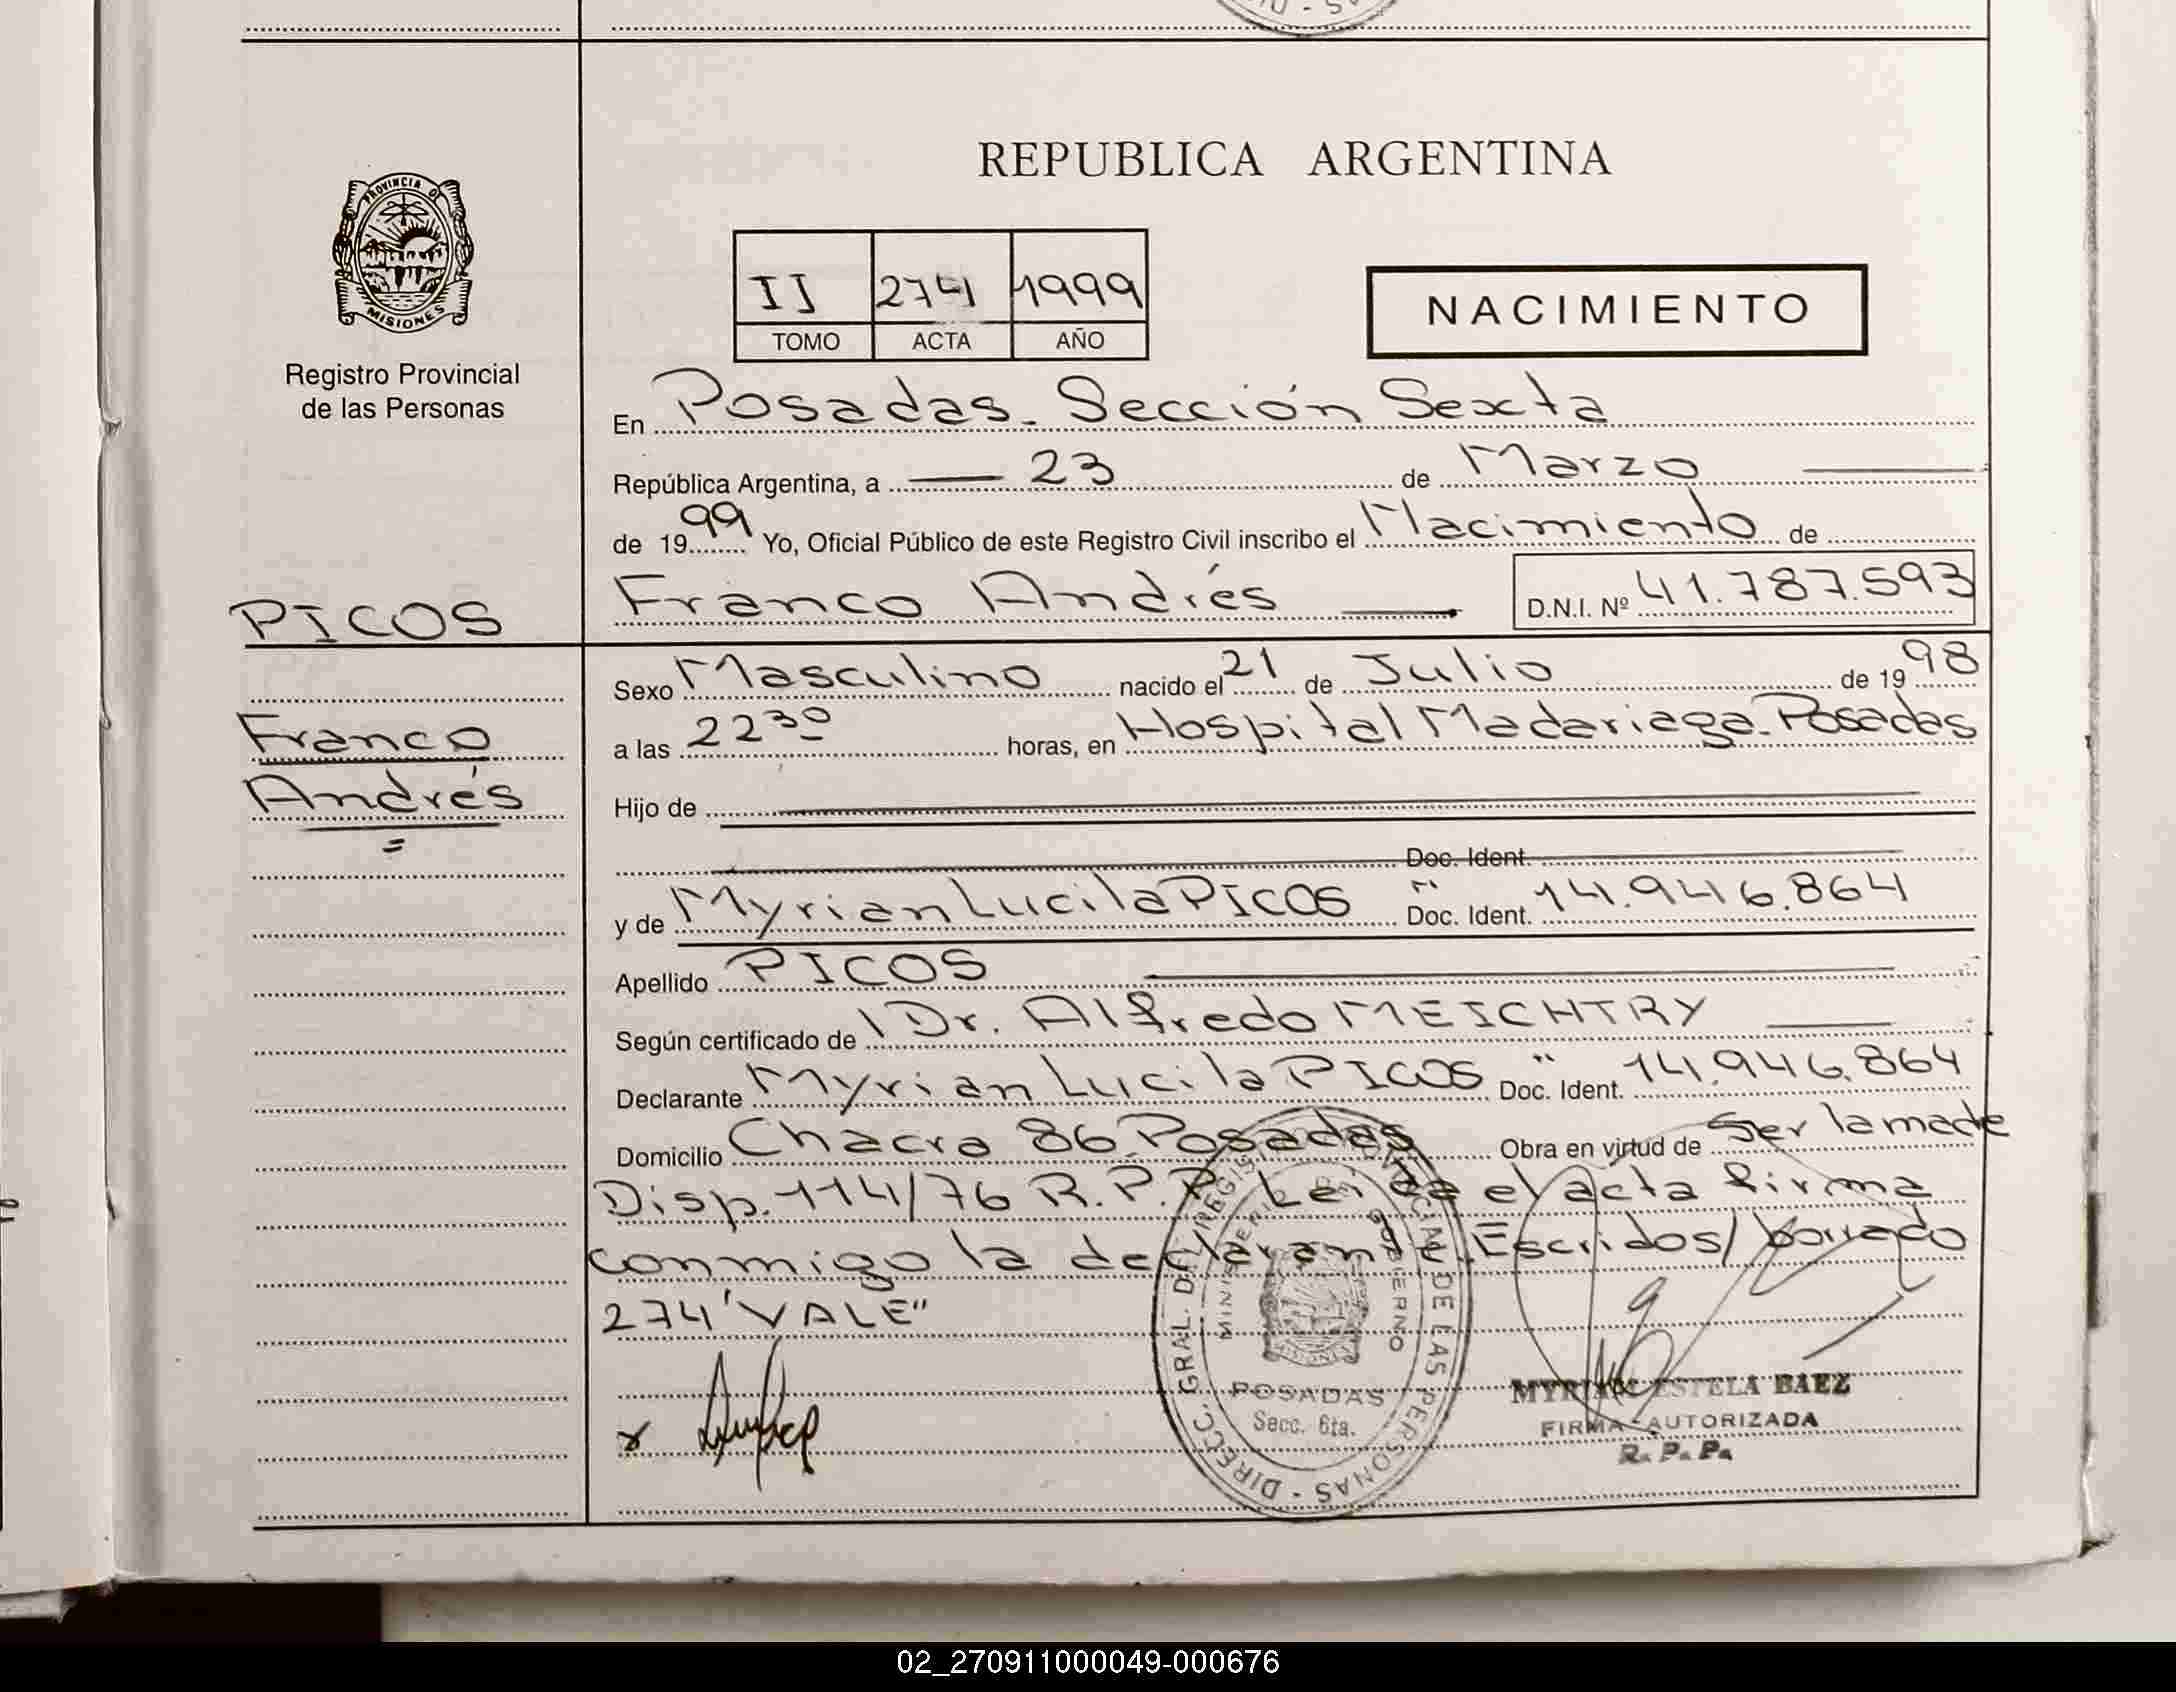 REPUBLICA ARGENTINA
PROVINCIA DE
MISIONES
Registro Provincial
de las Personas
II 274 1999
TOMO ACTA AÑO
NACIMIENTO
En Posadas. Sección Sexta
República Argentina, a 23 de Marzo
de 1999 Yo, Oficial Público de este Registro Civil inscribo el Nacimiento de
PICOS
Franco Andrés D.N.I. Nº 41.787.593
Sexo Masculino nacido el 21 de Julio de 1998
Franco
a las 22 30 horas, en Hospital Madariaga. Posadas
Andrés
Hijo de
Doc. Ident.
y de Myrian Lucila PICOS Doc. Ident. 14.946.864
Apellido PICOS
Según certificado de Dr. Alfredo MEICHTRY
Declarante Myrian Lucila PICOS Doc. Ident. 14.946.864
Domicilio Chacra 86 Posadas Obra en virtud de Ser la madre
Disp. 114/76 R.P.P. Leída el acta firma
conmigo la declarante. Escridos/borrado
274 "VALE"
DIRECC. GRAL. DEL REGIST. PROVINCIAL DE LAS PERSONAS
MINISTERIO DE GOBIERNO
MISIONES
POSADAS
Secc. 6ta.
MYRIAM ESTELA BAEZ
FIRMA AUTORIZADA
R. P. P.
02_270911000049-000676